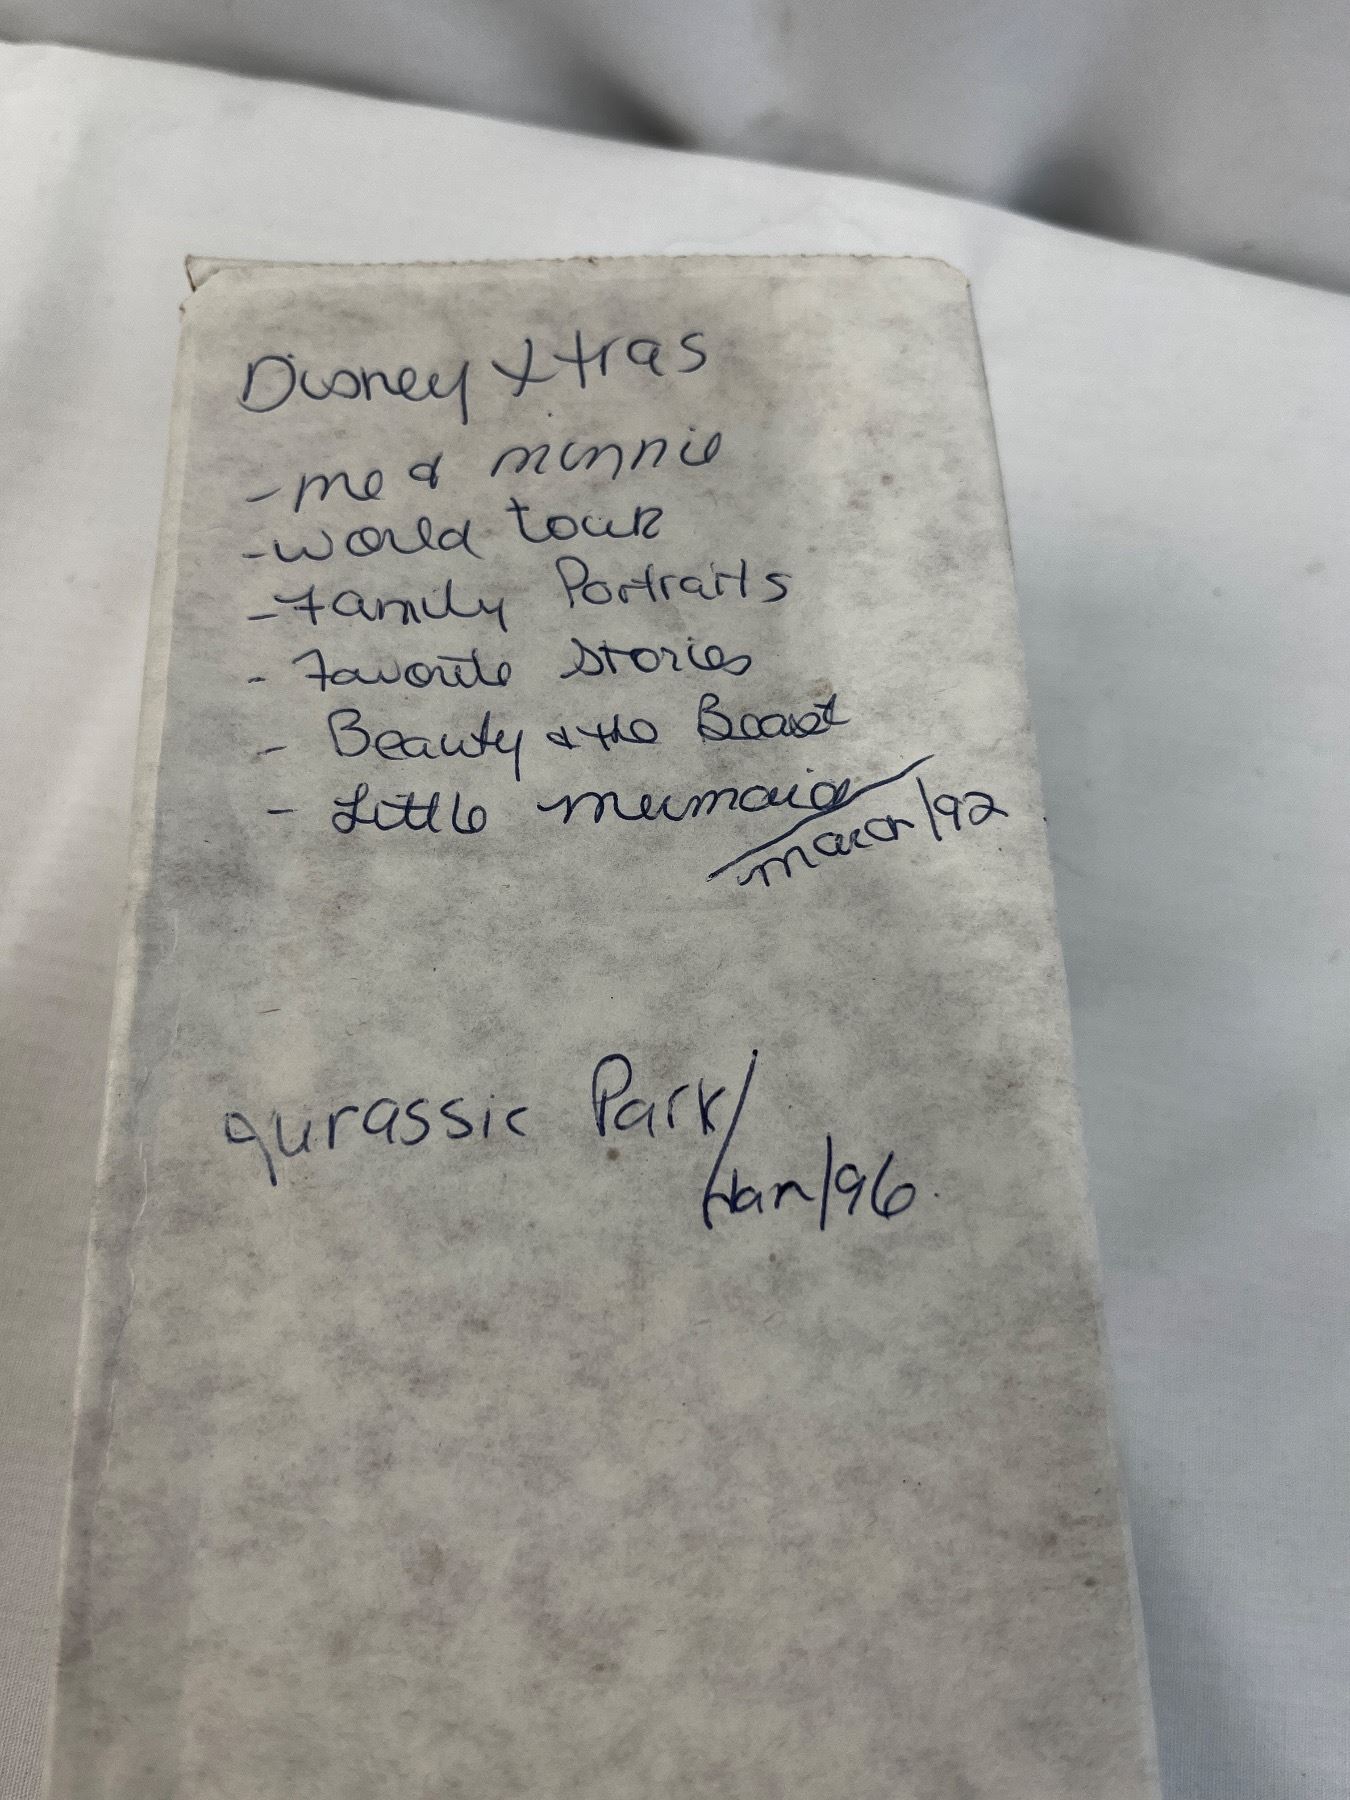 Disney Xtras
- me & minnie
- world tour
- Family Portraits
- Favorite Stories
- Beauty & the Beast
- Little mermaid
march/92
Jurassic Park/
Jan/96